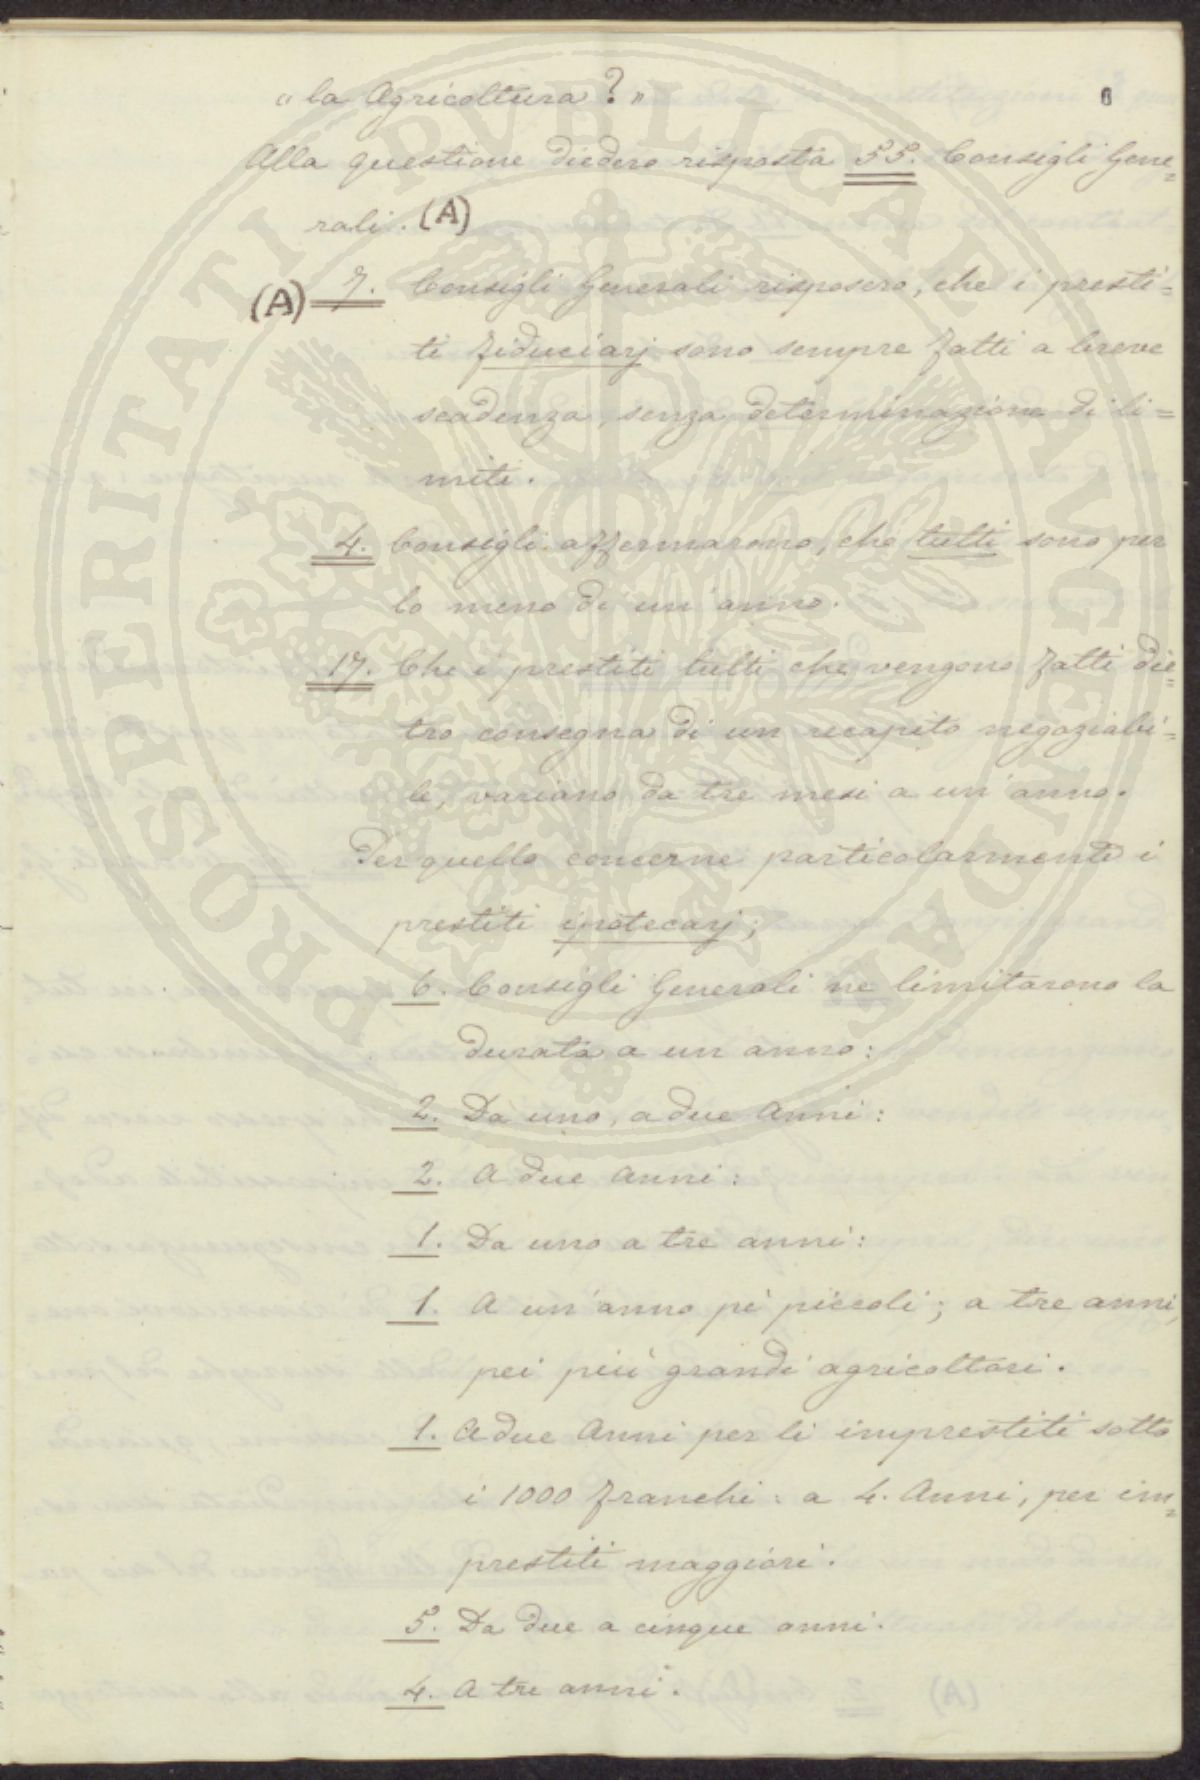 "la Agricoltura?" 6
Alla questione diedero risposta 55. Consigli Gene=
rali. (A)
(A) 7. Consigli Generali risposero, che i presti=
ti fiduciarj sono sempre fatti a breve
scadenza, senza determinazione di li=
miti.
4. Consigli affermarono, che tutti sono per
lo meno di un'anno.
17. Che i prestiti tutti che vengono fatti die=
tro consegna di un recapito negoziabi=
le, variano da tre mesi a un'anno.
Per quello concerne particolarmente i
prestiti ipotecarj;
6. Consigli Generali ne limitarono la
durata a un anno:
2. Da uno, a due Anni:
2. A due Anni:
1. Da uno a tre anni:
1. A un'anno pe' piccoli; a tre anni,
pei più grandi agricoltori.
1. A due Anni per li imprestiti sotto
i 1000 franchi: a 4. Anni, per im=
prestiti maggiori.
5. Da due a cinque anni.
4. A tre anni.
PROSPERITATI PVBLICAE AVGENDAE